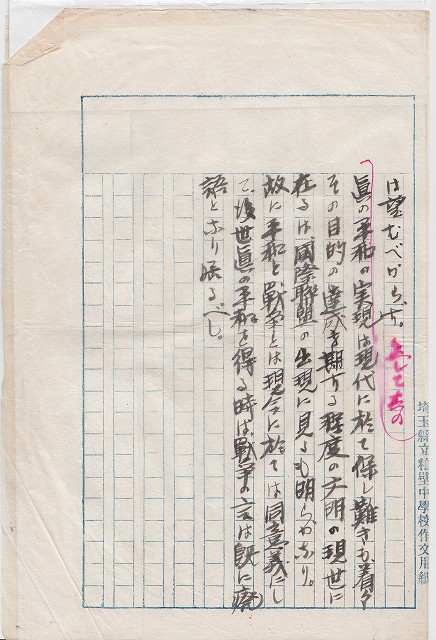 は望むべからず。
眞の平和の実現は現代に於て保し難きも着々
その目的の達成を期する程度の文明の現世に
在るは、國際聯盟の出現に見るも明らかなり。
故に平和と戰爭とは現今に於ては同意義にし
て、後世眞の平和を得る時は戰爭の言は既に廃
語となり居るべし。
埼玉縣立粕壁中學校作文用紙